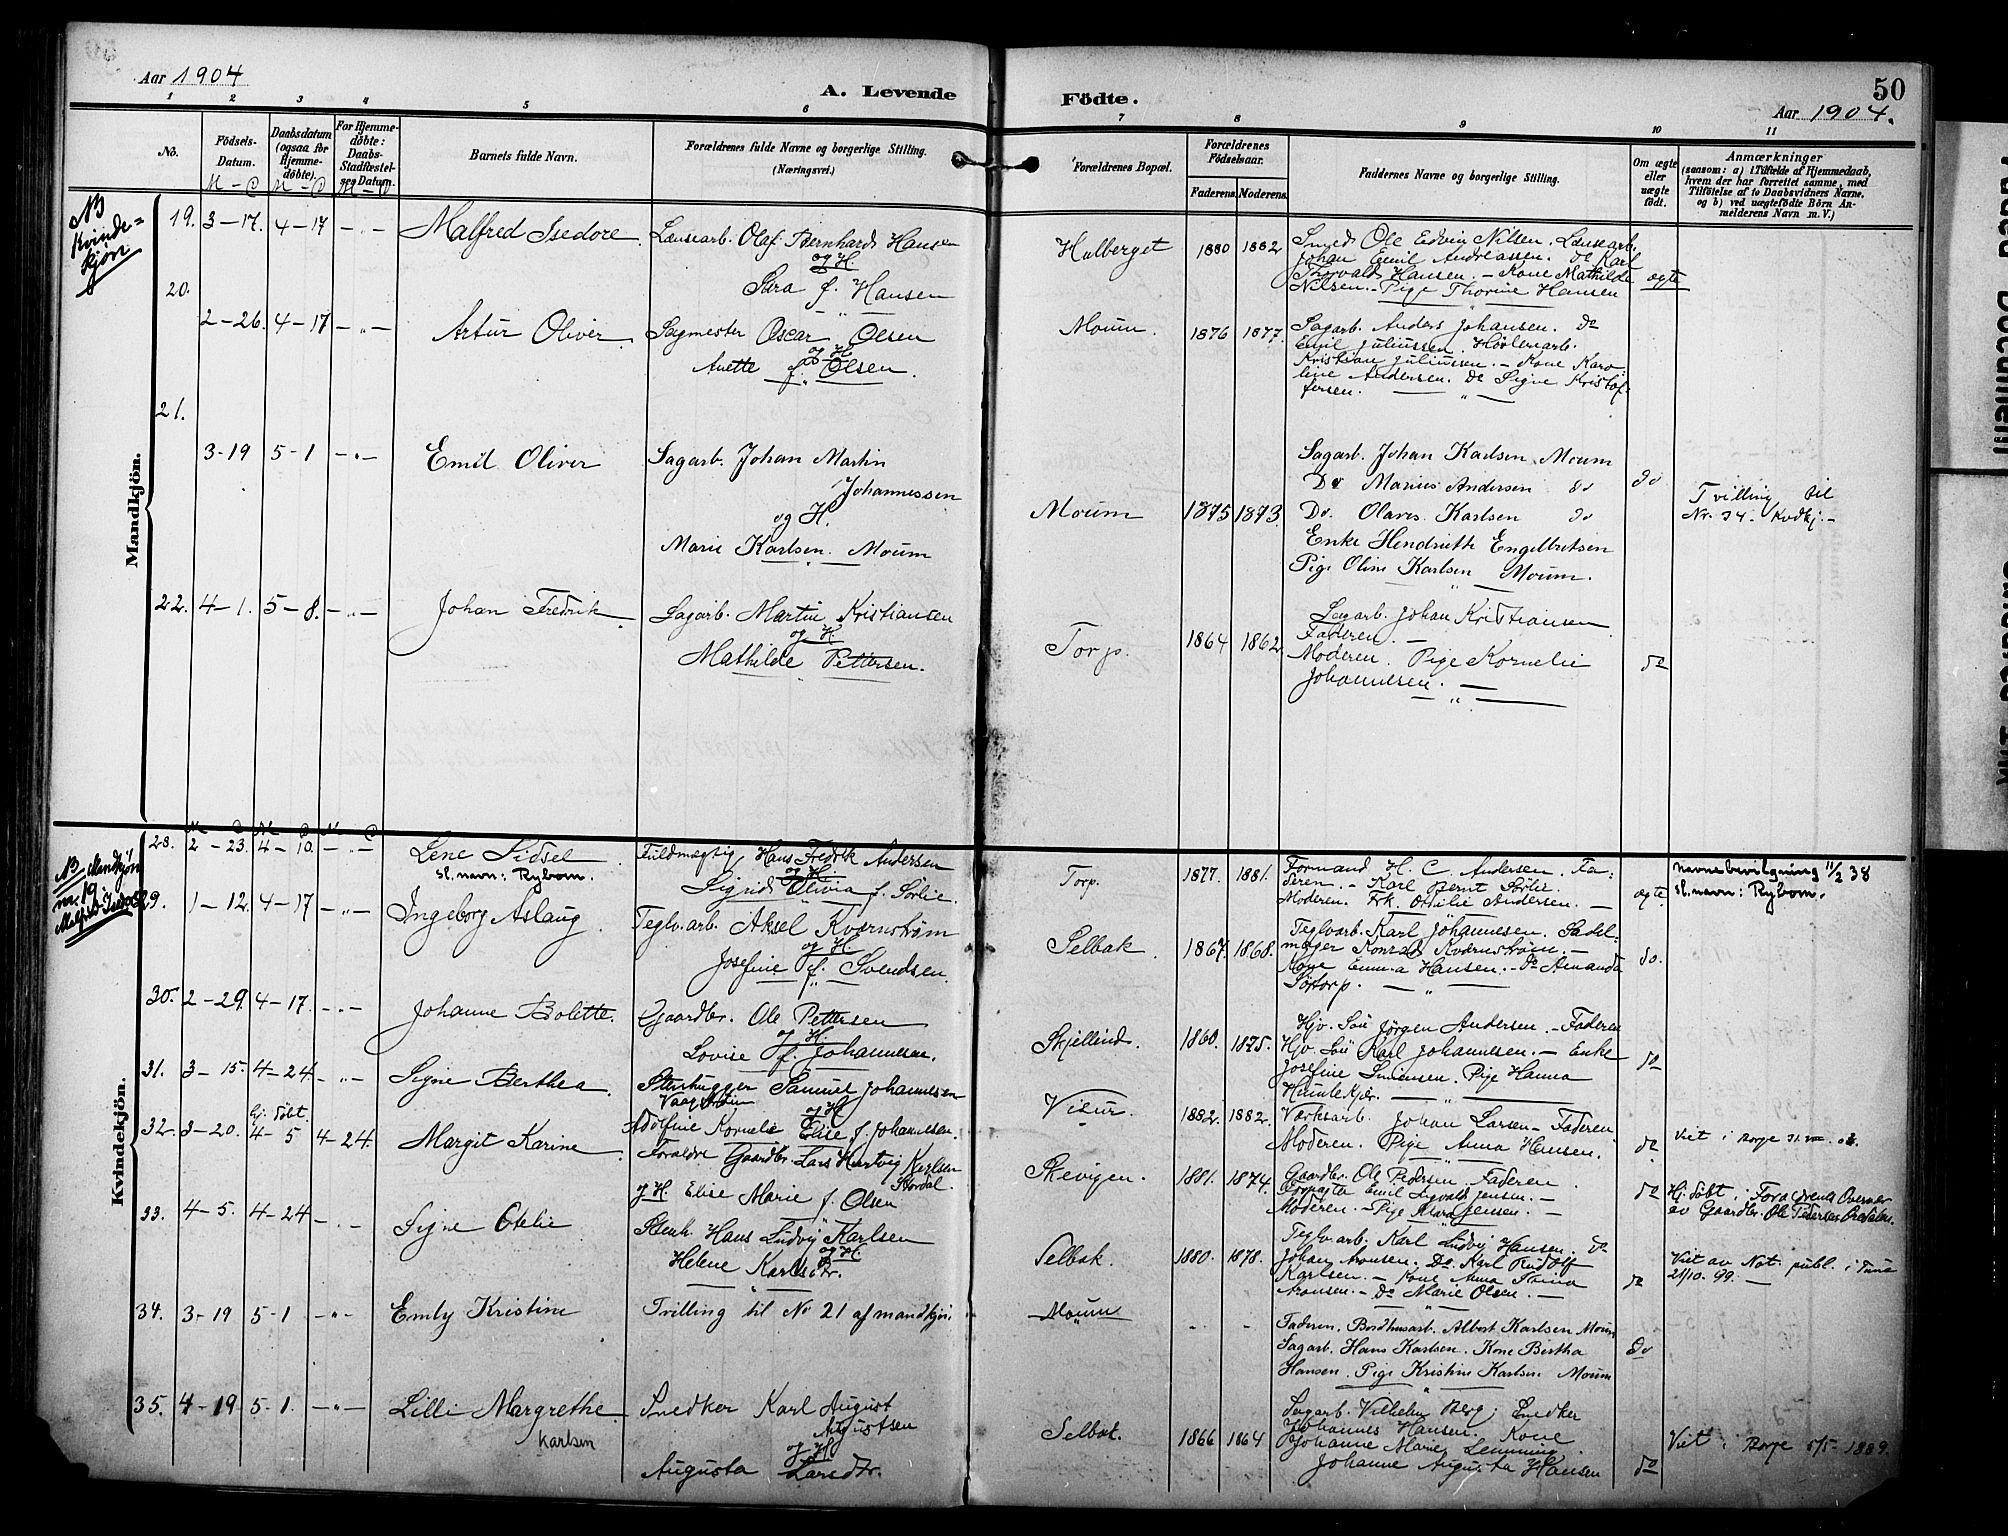 Aar 1904
A. Levende
Födte.
50
Aar 1904.
1 2 3 4 5 6 7 8 9 10 11
No.
Födsels-
Datum.
M - D
Daabsdatum
(ogsaa for
Hjemme-
döbte).
M - D
For Hjemme-
döbte:
Daabs-
Stadfæstel-
ses Datum.
M - D
Barnets fulde Navn.
Forældrenes fulde Navne og borgerlige Stilling.
(Næringsvei.)
Forældrenes Bopæl.
Forældrenes
Födselsaar.
Faderens. Moderens.
Faddernes Navne og borgerlige Stilling.
Om ægte
eller
uægte
födt.
Anmærkninger
(saasom: a) i Tilfælde af Hjemmedaab,
hvem der har forrettet samme, med
Tilföielse af to Daabsvidners Navne,
og b) ved uægtefödte Börn An-
melderens Navn m. V.)
NB
Kvinde=
kjön
Mandkjön.
19. 3-17. 4-17 -"- Malfred Isedore. Lænsearb. Olaf Bernhard Hansen
og H.
Sara f. Hansen
Hulberget 1880 1882
Smed Ole Edvin Nilsen. Lænsearb.
Johan Emil Andreassen. do Karl
Thorvald Hansen. - Kone Mathilde
Nilsen. - Pige Thorine Hansen
ægte
20.
2-26. 4-17 -"- Artur Oliver. Sagmester Oscar Olsen
og H.
Anette f. Olsen.
Moum. 1876 1877.
Sagarb. Anders Johansen. do
Emil Juliussen. Høvleriarb.
Kristian Juliussen. - Kone Karo-
line Andersen. do Signe Kristof-
fersen.
21.
3-19 5-1 -"- Emil Oliver Sagarb. Johan Martin
Johannessen
og H.
Marie Karlsen. Moum
Moum 1875 1873.
Sagarb. Johan Karlsen Moum
Do Marius Andersen do
Do. Olavis Karlsen do
Enke Hendriette Engelbretsen
Pige Oline Karlsen Moum.
do
Tvilling til
Nr. 34 - Kvdkj. -
22. 4-1. 5-8. -"- Johan Fredrik. Sagarb. Martin Kristiansen
og H.
Mathilde Pettersen.
Torp. 1864 1862
Sagarb. Johan Kristiansen
Faderen. -
Moderen. Pige Kornelie
Johannesen. -
do
NB Mandkjön
nr. 19
Kvindekjön.
M D M D M D
28. 2-23. 4-10. -"- Lene Sidsel.
sl.navn: Rybom.
Fuldmægtig Hans Fredrik Andersen
og H.
Sigrid Olivia f. Sørlie.
Torp. 1877. 1881.
Formand H. C. Andersen. Fa-
deren. - Karl Bernt Sørlie.
Moderen. Frk. Ottilie Andersen. -
ægte
Navnebevilgning 11/2 38
sl.navn: Rybom.
29. 1-12. 4-17 -"- Ingeborg Aslaug. Teglv.arb. Aksel Kvarnstrøm
og H.
Josefine f. Svendsen.
Selbak. 1867. 1868.
Teglvarb. Karl Johannesen. Sadel-
mager Konrad Kvarnstrøm. -
Kone Emma Hansen. - do Amanda
Sørtorp. -
do.
30. 2-29. 4-17. -"- Johanne Bolette. Gaardbr. Ole Pettersen
og H.
Lovise f. Johannesen.
Skjellind. 1860. 1875.
Hjv. Søn Jørgen Andersen. - Faderen
Hjv. Søn Karl Johannesen. - Enke
Josefine Simensen. Pige Hanna
Humlekjær. -
do
31. 3-15. 4-24 -"- Signe Berthea. Stenhugger Samuel Johannesen
og H.
Adolfine Kornelie Elise f. Johannesen.
Visur. 1882. 1882.
Værksarb. Johan Larsen - Faderen
Moderen. Pige Anna Hansen.
do
32. 3-20. Hj. døbt 4-5 4-24. Margit Karine. Forældre Gaardbr. Lars Hartvig Karlsen
og H. Elise Marie f. Olsen
Skevigen. 1881. 1874.
Gaardbr. Ole Pedersen. Faderen.
Moderen. - Pige
do
Hj. døbt.
33. 4-5. 4-24 -"- Signe Otelie Stenh. Hans Ludvig Karlsen
og H.
Helene Karlsdtr.
Selbak. 1880. 1878.
Teglv.arb. Karl Ludvig Hansen. do
Johan Aronsen. Do. Karl Rudolf
Karlsen. - Kone Anna
Aronsen. - do Marie Olsen. -
do
Viet av Not. publ. i Tune
21/10. 99. -
34. 3-19 5-1 -"- Emly Kristine Tvilling til No 21 af mandkjön
Moum - -
Faderen. Bordhusarb. Albert Karlsen Moum
Sagarb. Hans Karlsen. Kone Bertha
Hansen. Pige Kristine Karlsen Moum
do
35. 4-19 5-1. -"- Lilli Margrethe
Karlsen
Snedker Karl August
Augustsen
og H.
Augusta Larsdtr.
Selbak. 1866 1864
Sagarb. Vilhelm Berg; Snedker
Johannes Hansen. Kone
Johanne Marie Lemming.
Johanne Augusta Hansen
do
Viet i Borge 5/5 1889.